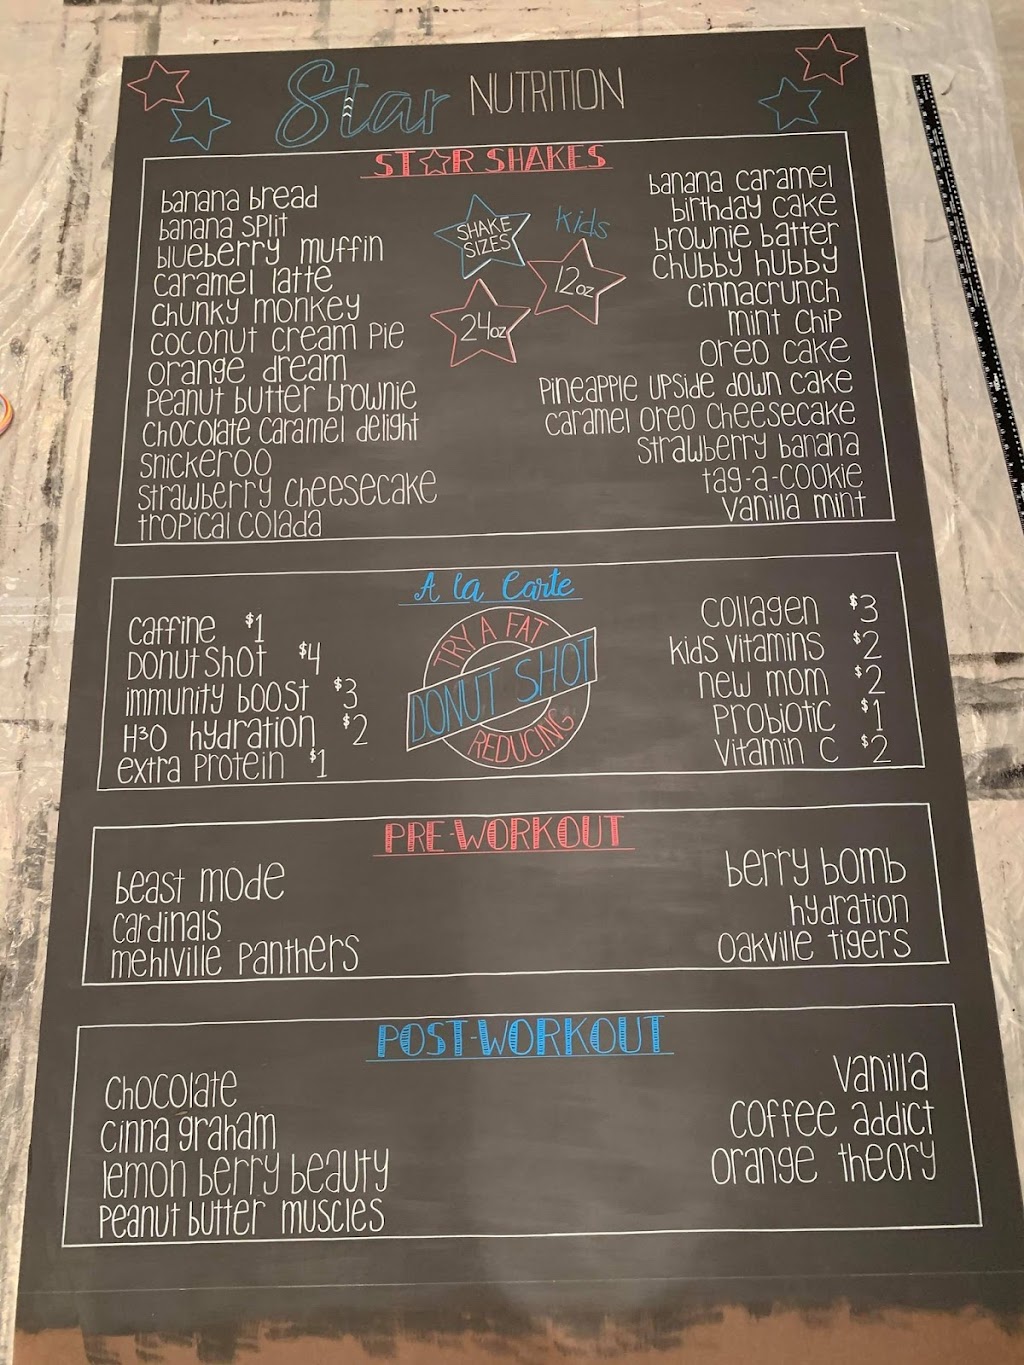 Star NUTRITION
ST☆R SHAKES
banana bread
banana split
blueberry muffin
caramel latte
chunky monkey
coconut cream pie
orange dream
peanut butter brownie
chocolate caramel delight
snickeroo
strawberry cheesecake
tropical colada
SHAKE
SIZES
kids
12oz
24oz
banana caramel
birthday cake
brownie batter
chubby hubby
cinnacrunch
mint chip
oreo cake
pineapple upside down cake
caramel oreo cheesecake
strawberry banana
tag-a-cookie
vanilla mint
A la Carte
caffine $1
Donut Shot $4
immunity boost $3
H³O hydration $2
extra protein $1
TRY A FAT
DONUT SHOT
REDUCING
collagen $3
kids vitamins $2
new mom $2
probiotic $1
vitamin c $2
PRE-WORKOUT
beast mode
cardinals
mehlville panthers
berry bomb
hydration
oakville tigers
POST-WORKOUT
chocolate
cinna graham
lemon berry beauty
peanut butter muscles
vanilla
coffee addict
orange theory